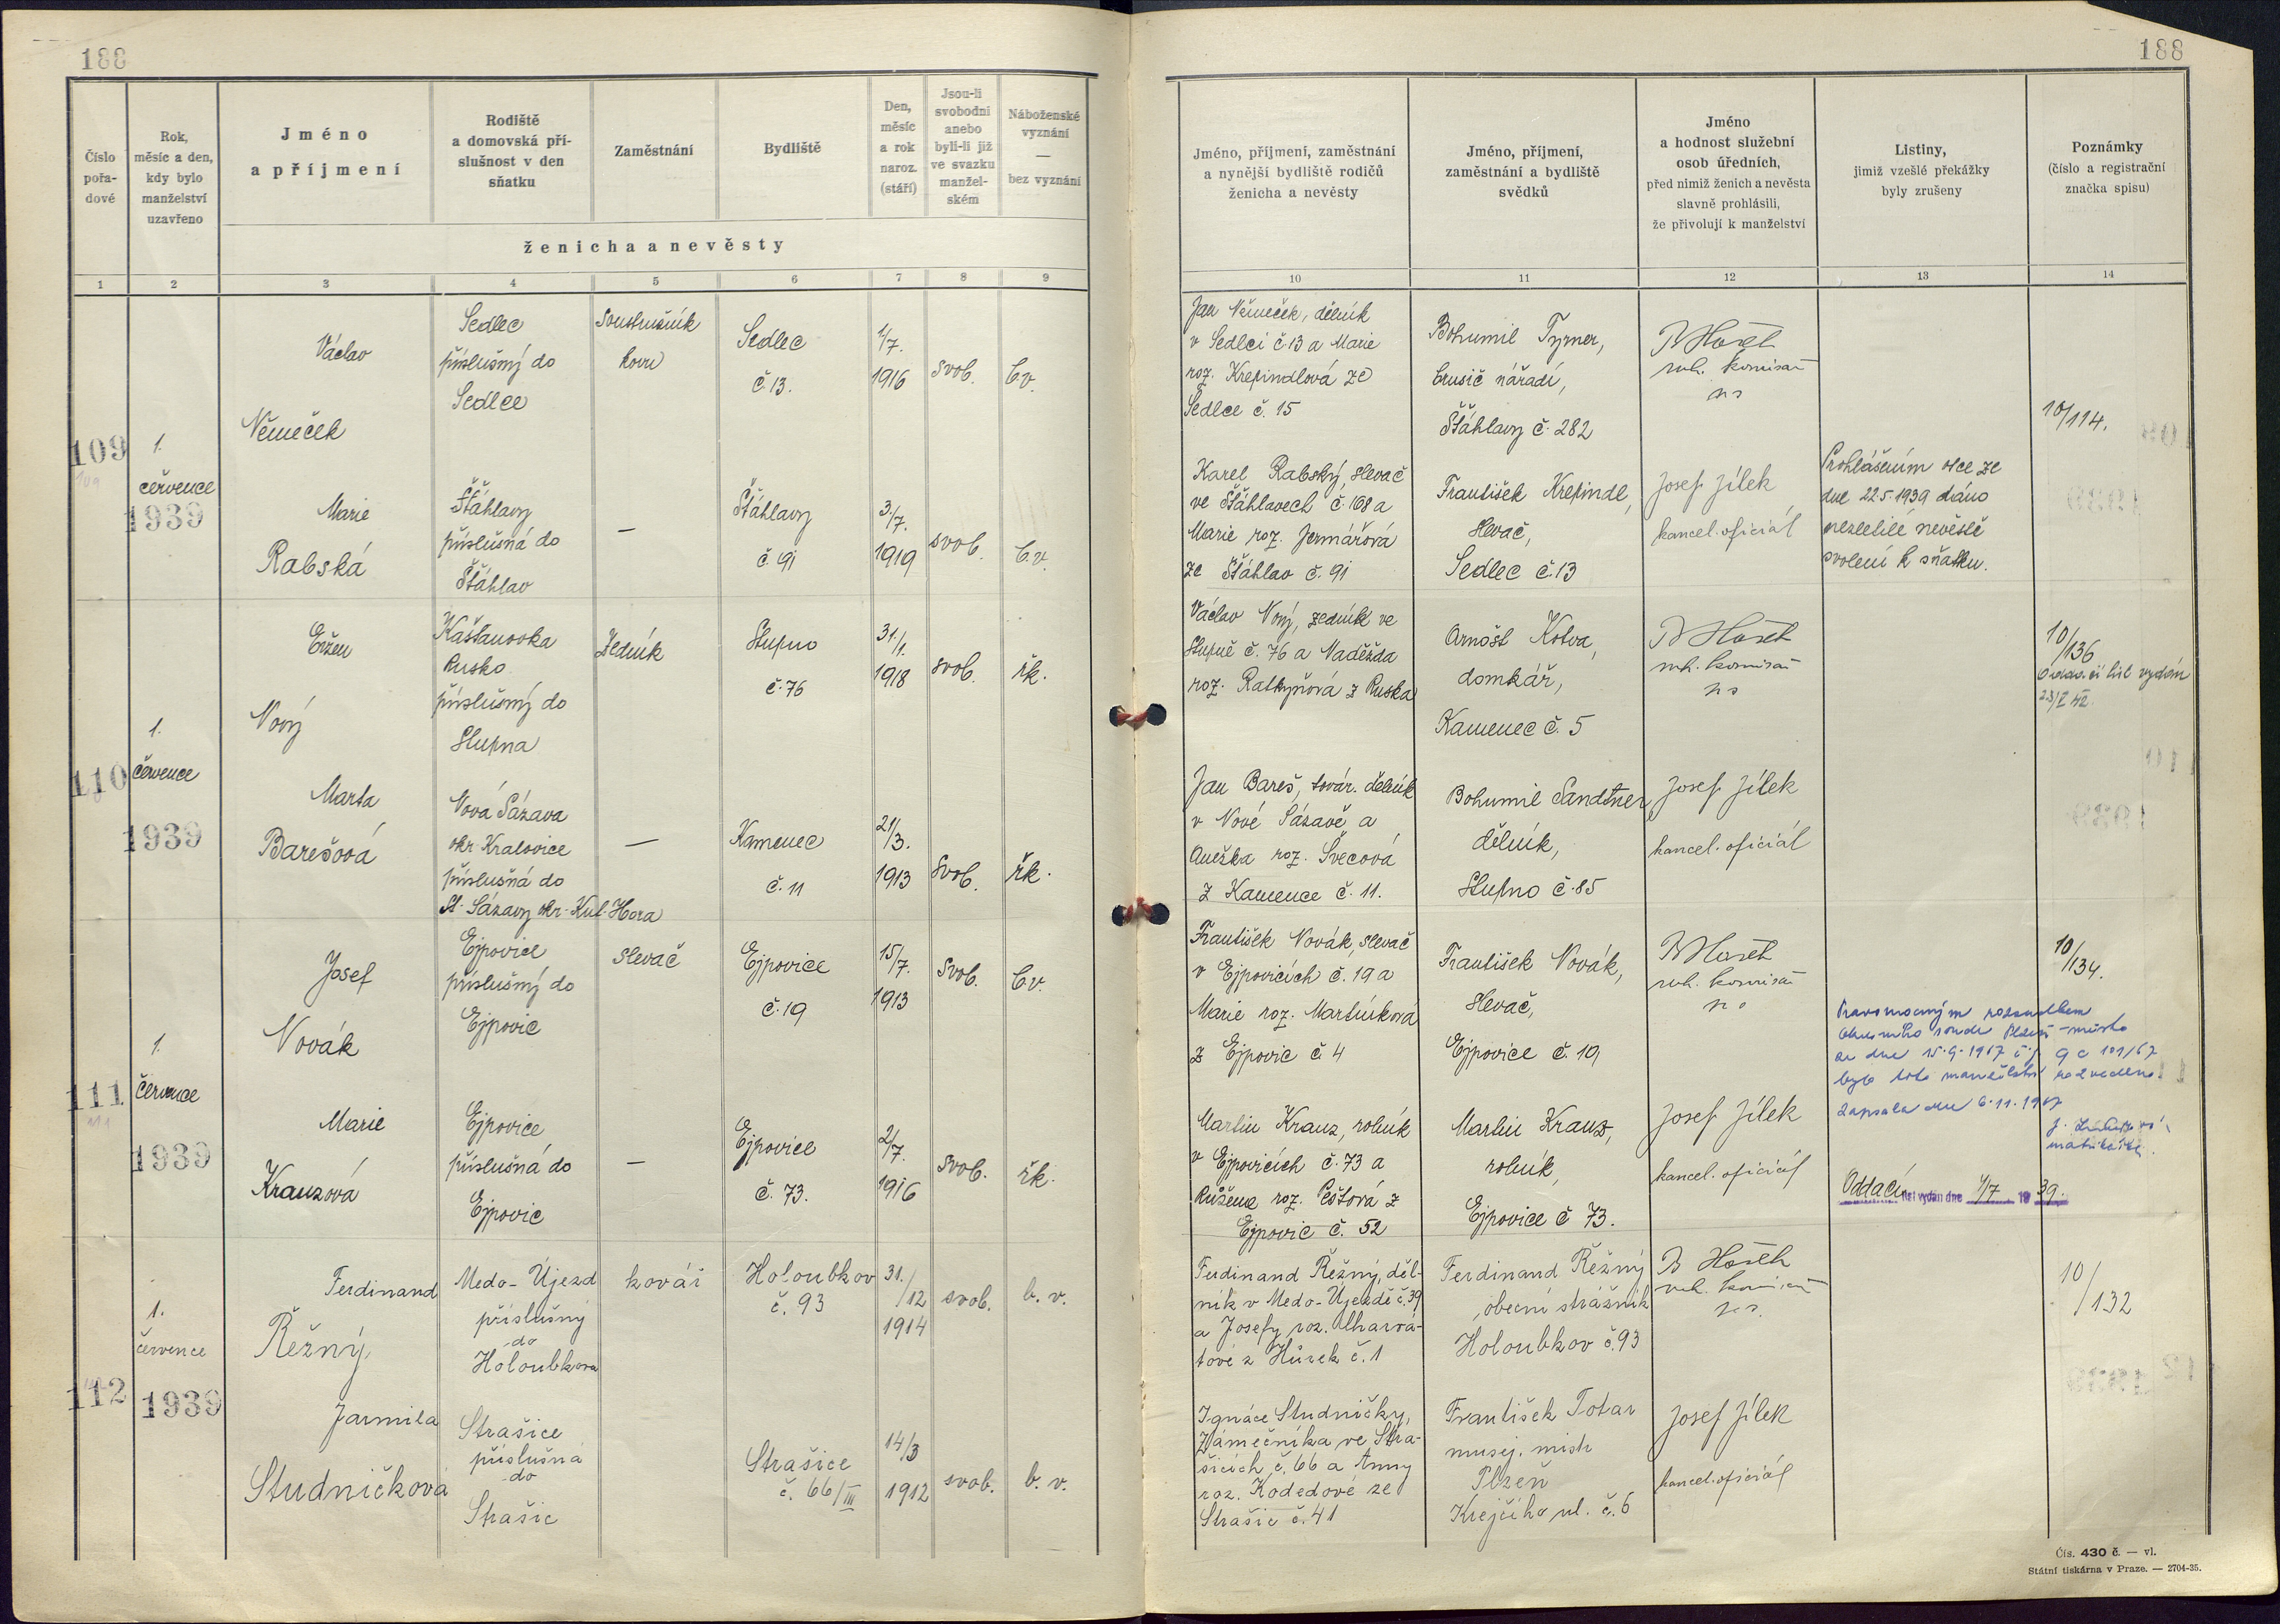 188
188
Číslo
pořa-
dové
Rok,
měsíc a den,
kdy bylo
manželství
uzavřeno
Jméno
a příjmení
Rodiště
a domovská pří-
slušnost v den
sňatku
Zaměstnání
Bydliště
Den,
měsíc
a rok
naroz.
(stáří)
Jsou-li
svobodni
anebo
byli-li již
ve svazku
manžel-
ském
Náboženské
vyznání
—
bez vyznání
ženicha a nevěsty
Jméno, příjmení, zaměstnání
a nynější bydliště rodičů
ženicha a nevěsty
Jméno, příjmení,
zaměstnání a bydliště
svědků
Jméno
a hodnost služební
osob úředních,
před nimiž ženich a nevěsta
slavně prohlásili,
že přivolují k manželství
Listiny,
jimiž vzešlé překážky
byly zrušeny
Poznámky
(číslo a registrační
značka spisu)
1 2 3 4 5 6 7 8 9 10 11 12 13 14
109
1.
července
1939
Václav
Němeček
Sedlec
příslušný do
Sedlce
Soustružník
kovu
Sedlec
č. 13.
1/7.
1916
svob.
b.v.
Jan Němeček, dělník
v Sedlci č. 13 a Marie
roz. Krepindlová ze
Sedlce č. 15
Bohumil Tyrner,
brusič nářadí,
Šťáhlavy č. 282
komisař
10/114.
Marie
Rabská
Šťáhlavy
příslušná do
Šťáhlav
—
Šťáhlavy
č. 91
3./7.
1919
svob.
b.v.
Karel Rabský, slevač
ve Šťáhlavech č. 168 a
Marie roz. Jermářová
ze Šťáhlav č. 91
František Krepindl,
slevač,
Sedlec č. 13
Josef Jílek
kancel. oficiál
Prohlášením otce ze
dne 22.5 1939 dáno
nezletilé nevěstě
svolení k sňatku.
110
1.
července
1939
Evžen
Nový
Kaštanovka
Rusko
příslušný do
Stupna
Zedník
Stupno
č. 76
31./1.
1918
svob.
řk.
Václav Nový, zedník ve
Stupně č. 76 a Naděžda
roz. Ratkyňová z Ruska
Arnošt Kotva,
domkář,
Kamenec č. 5
komisař
10/136
Oddací list vydán
Marta
Barešová
Nová Sázava
okr. Kralovice
příslušná do
St. Sázavy okr. Kut. Hora
—
Kamenec
č. 11
21/3.
1913
svob.
řk.
Jan Bareš, továr. dělník
v Nové Sázavě a
Anežka roz. Švecová
z Kamence č. 11.
Bohumil Sandtner
dělník,
Stupno č. 85
Josef Jílek
kancel. oficiál
111
1.
července
1939
Josef
Novák
Ejpovice
příslušný do
Ejpovic
slevač
Ejpovice
č. 19
15/7.
1913
svob.
b.v.
František Novák, slevač
v Ejpovicích č. 19 a
Marie roz. Martínková
z Ejpovic č. 4
František Novák,
slevač,
Ejpovice č. 19
komisař
10/134.
Pravomocným rozsudkem
Okresního soudu Plzeň-město
ze dne 15.9.1967 č.j. 9 c 101/67
bylo toto manželství rozvedeno.
Zapsala dne 6.11.1967
matrikářka.
Marie
Krauzová
Ejpovice
příslušná do
Ejpovic
—
Ejpovice
č. 73.
2/7.
1916
svob.
řk.
Martin Krauz, rolník
v Ejpovicích č. 73 a
Růžena roz. Peštová z
Ejpovic č. 52
Martin Krauz,
rolník,
Ejpovice č 73.
Josef Jílek
kancel. oficiál
Oddací list vydán dne 1/7 19 39.
112
1.
července
1939
Ferdinand
Řežný
Medo-Újezd
příslušný
do
Holoubkova
kovář
Holoubkov
č. 93
31./12
1914
svob.
b. v.
Ferdinand Řežný, děl-
ník v Medo-Újezdě č. 39
a Josefy roz. Uharva-
tové z Hůrek č. 1
Ferdinand Řežný
, obecní strážník
Holoubkov č. 93
komisař
10/132
Jarmila
Studničková
Strašice
příslušná
do
Strašic
Strašice
č. 66/III
14/3
1912
svob.
b. v.
Ignáce Studničky,
Zámečníka ve Stra-
šicích č. 66 a Anny
roz. Kodedové ze
Strašic č. 41
František Totar
musej. mistr
Plzeň
Krejčího ul. č. 6
Josef Jílek
kancel. oficiál
Čís. 430 č. — vl.
Státní tiskárna v Praze. — 2704-35.